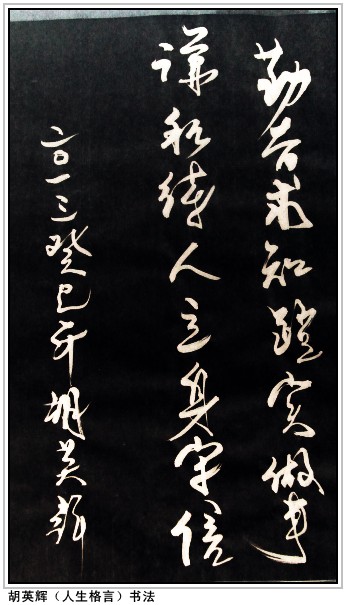 勤苦求知踏实做事
谦和待人立身守信
二〇一三癸巳年胡英辉
胡英辉（人生格言）书法